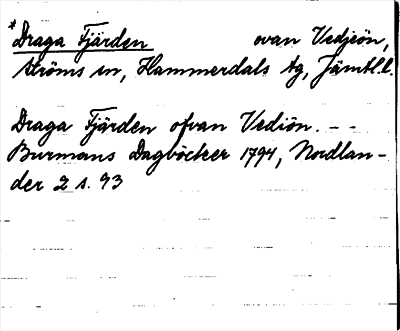 *Draga Fjärden ovan Vedjeön,
Ströms sn, Hammerdals tg, Jämtl. l.
Draga Fjärden ofvan Vediön. - -
Burmans Dagböcker 1794, Nordlan-
der 2 s. 93